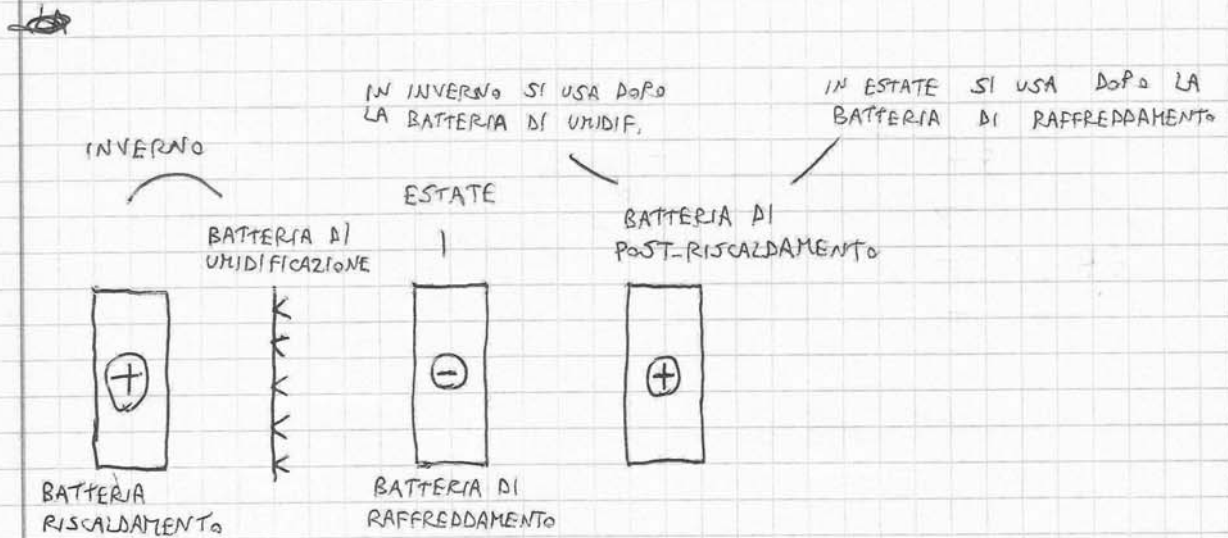 IN INVERNO SI USA DOPO
LA BATTERIA DI UMIDIF.
IN ESTATE SI USA DOPO LA
BATTERIA DI RAFFREDDAMENTO
INVERNO
ESTATE
BATTERIA DI
UMIDIFICAZIONE
BATTERIA DI
POST-RISCALDAMENTO
+
-
+
BATTERIA
RISCALDAMENTO
BATTERIA DI
RAFFREDDAMENTO